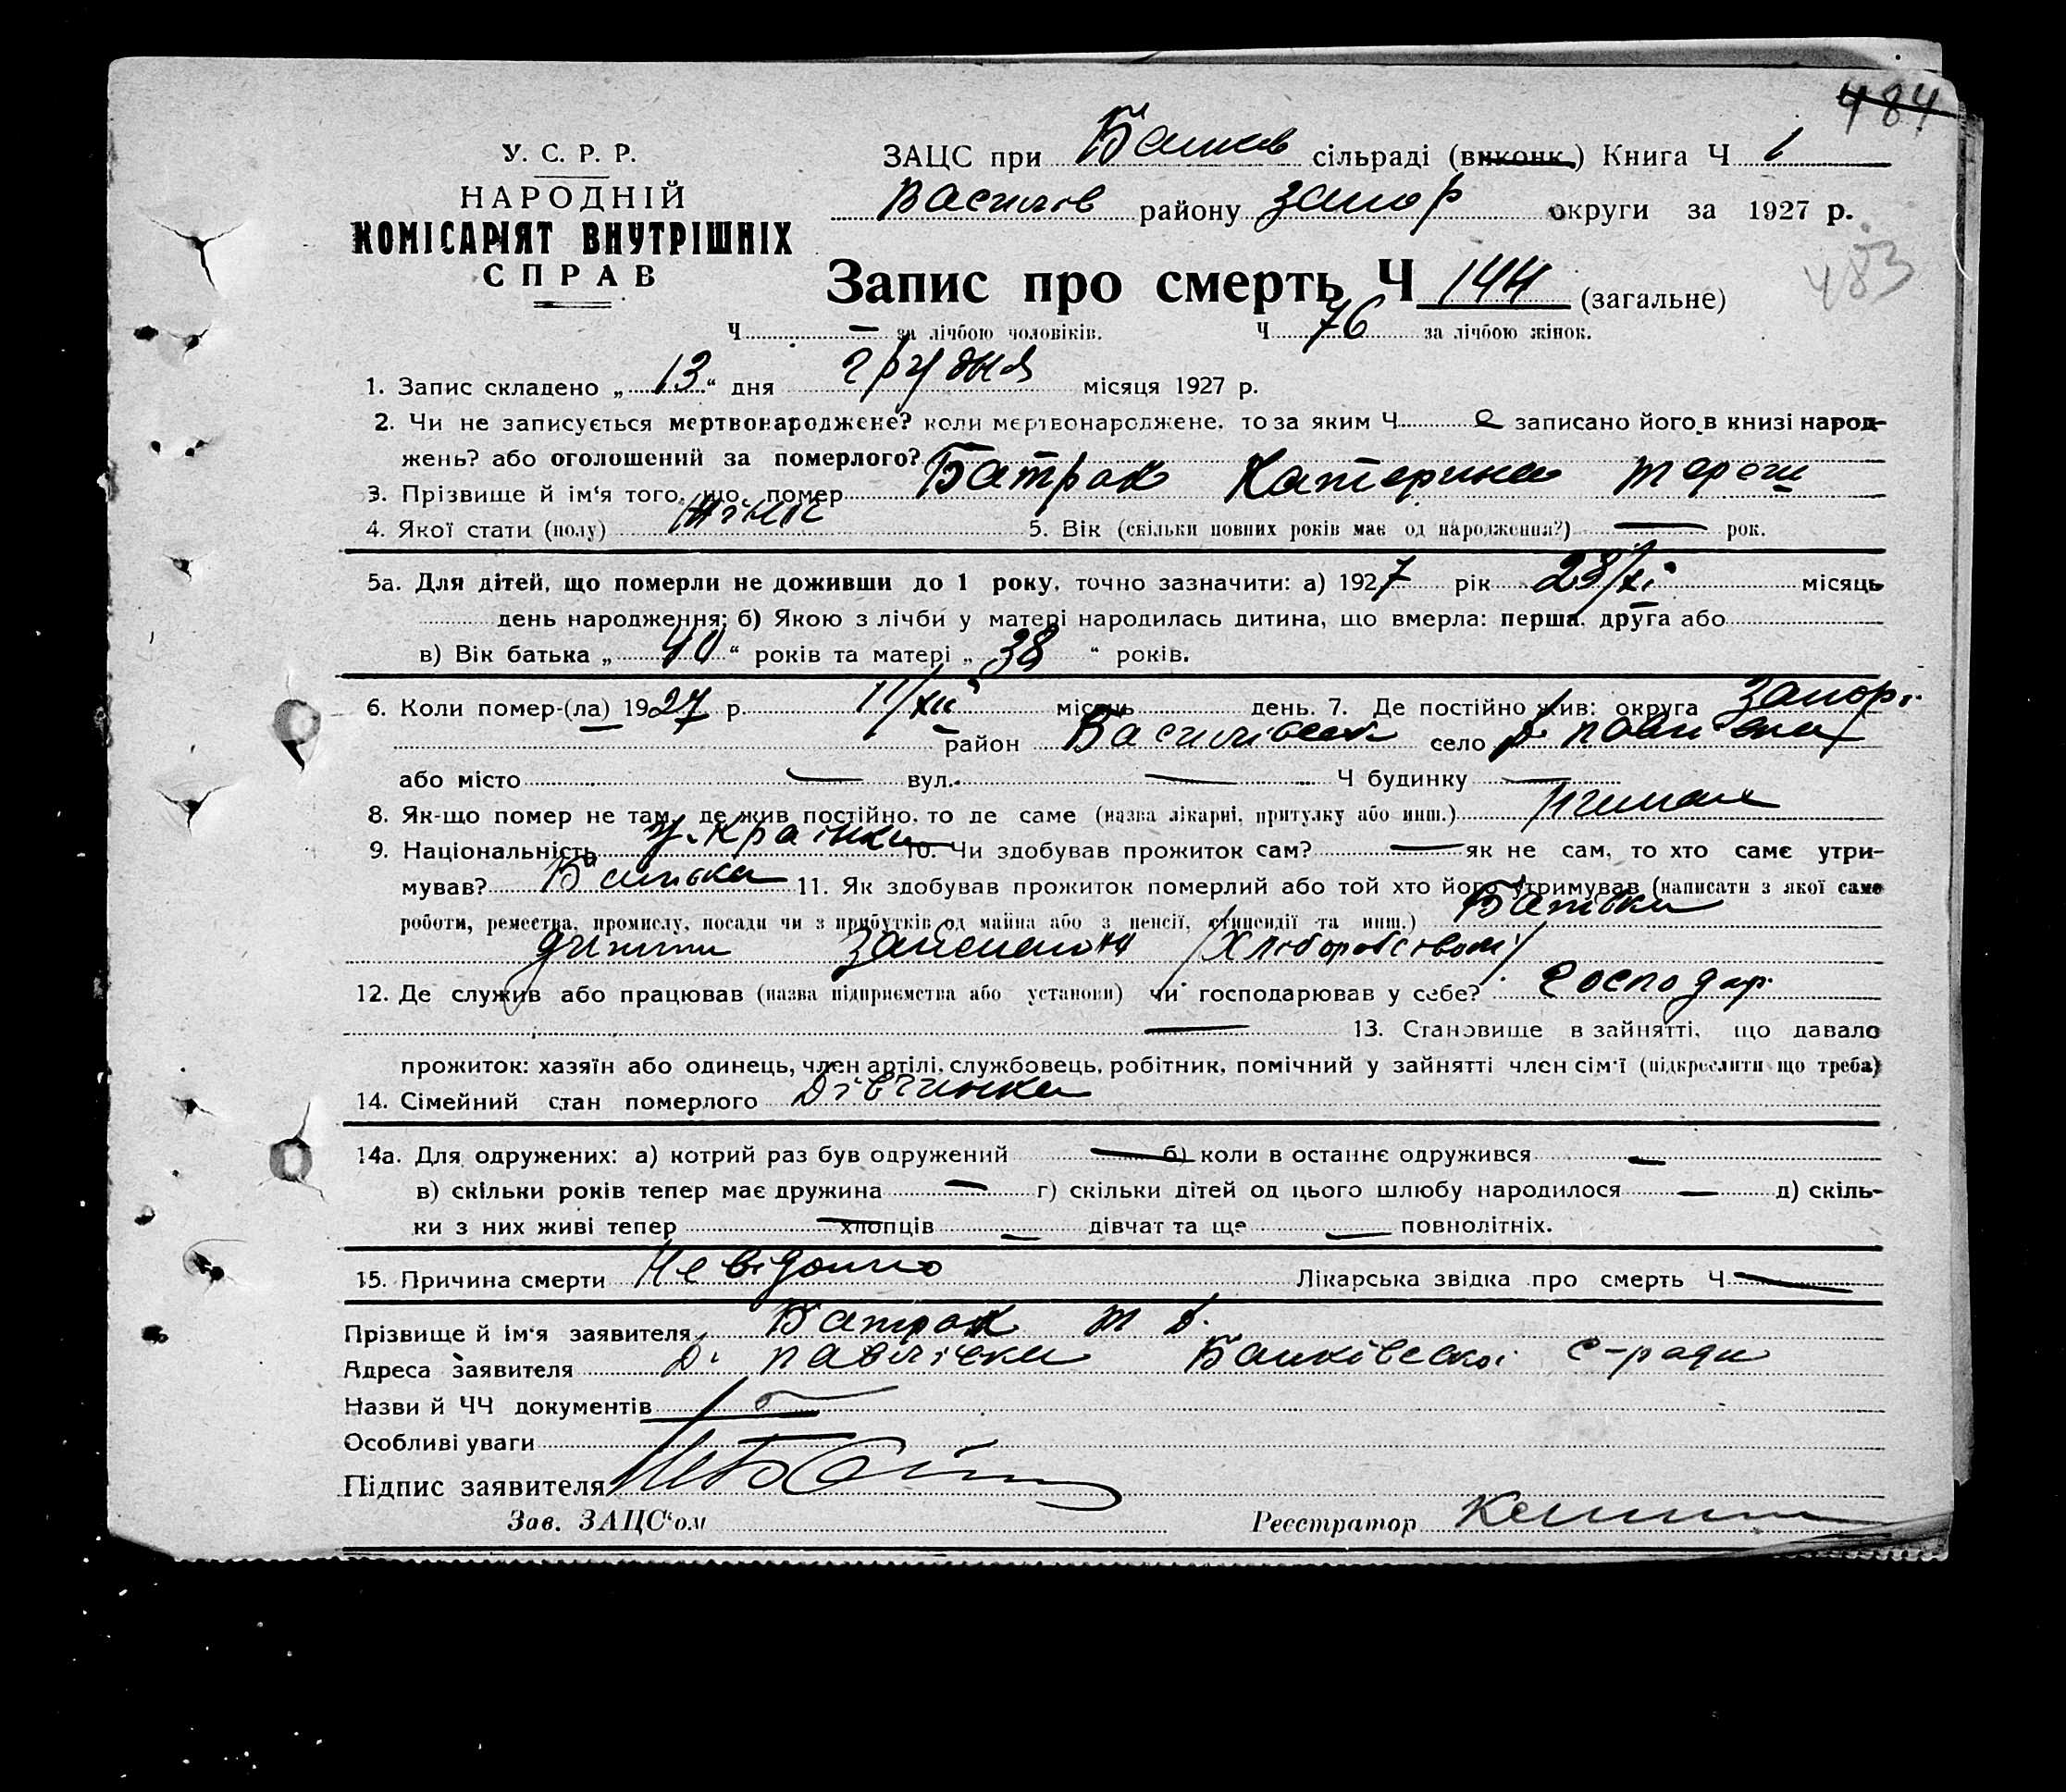 484
У. С. Р. Р.
НАРОДНІЙ
КОМІСАРІЯТ ВНУТРІШНІХ
СПРАВ
ЗАЦС при Башков сільраді (виконк.) Книга Ч 1
Василів району Запор округи за 1927 р.
483
Запис про смерть Ч 144 (загальне)
Ч — за лічбою чоловіків. Ч 76 за лічбою жінок.
1. Запис складено „ 13 “ дня грудня місяця 1927 р.
2. Чи не записується мертвонароджене? коли мертвонароджене, то за яким Ч записано його в книзі народ-
жень? або оголошений за померлого?
3. Прізвище й ім‘я того, що помер Батрак Катерина
4. Якої стати (полу) 5. Вік (скільки повних років має од народження?) — рок.
5а. Для дітей, що померли не доживши до 1 року, точно зазначити: а) 1927 рік 28/XI місяць
день народження; б) Якою з лічби у матері народилась дитина, що вмерла: перша, друга або
в) Вік батька „ 40 “ років та матері „ 38 “ років.
6. Коли помер-(ла) 1927 р. 11/XII місяць день. 7. Де постійно жив: округа Запор.
район Василівськ село Павлівка
або місто — вул. — Ч будинку —
8. Як-що помер не там, де жив постійно, то де саме (назва лікарні, притулку або инш.)
9. Національність Українка 10. Чи здобував прожиток сам? — як не сам, то хто саме утри-
мував? Батько 11. Як здобував прожиток померлий або той хто його утримував (написати з якої саме
роботи, ремества, промислу, посади чи з прибутків од майна або з пенсії, стипендії та инш.) Батьки
/Хліборобством/
12. Де служив або працював (назва підприємства або установи) чи господарював у себе? Господар.
— 13. Становище в зайнятті, що давало
прожиток: хазяїн або одинець, член артілі, службовець, робітник, помічний у зайнятті член сім‘ї (підкреслити що треба)
14. Сімейний стан померлого Дівчинка
14а. Для одружених: а) котрий раз був одружений — б) коли в останнє одружився —
в) скільки років тепер має дружина — г) скільки дітей од цього шлюбу народилося — д) скіль-
ки з них живі тепер — хлопців — дівчат та ще — повнолітніх.
15. Причина смерти Невідомо Лікарська звідка про смерть Ч —
Прізвище й ім‘я заявителя Батрак Т
Адреса заявителя Павлівка с-ради
Назви й ЧЧ документів
Особливі уваги
Підпис заявителя
Зав. ЗАЦС‘ом Реєстратор